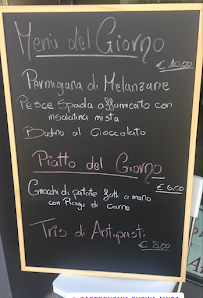 Menù del Giorno
€ 10,00
Parmigiana di Melanzane
Pesce Spada affumicato con
insalatina mista
Budino al Cioccolato
Piatto del Giorno
€ 6,50
Gnocchi di patate fatti a mano
con Ragù di Carne
Tris di Antipasti
€ 8,00